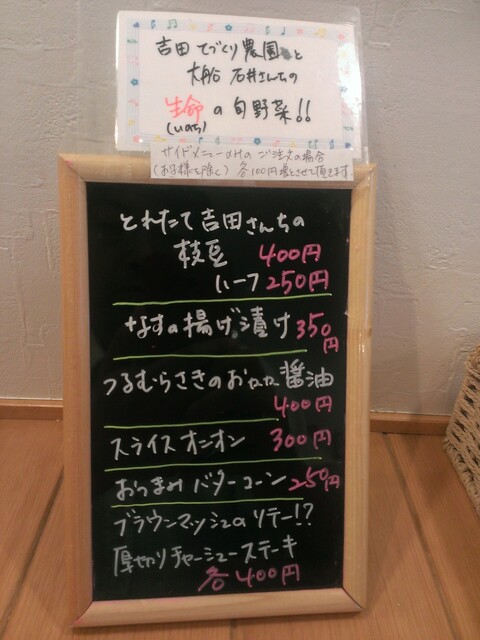 吉田 てづくり農園と
大船 石井さんちの
生命の旬野菜!!
(いのち)
サイドメニューのみのご注文の場合
(お子様を除く) 各100円増とさせて頂きます。
とれたて吉田さんちの
枝豆 400円
ハーフ 250円
なすの揚げ漬け 350円
つるむらさきのおかか醤油
400円
スライスオニオン 300円
おつまみバターコーン 250円
ブラウンマッシュのソテー!?
厚切りチャーシューステーキ
各400円